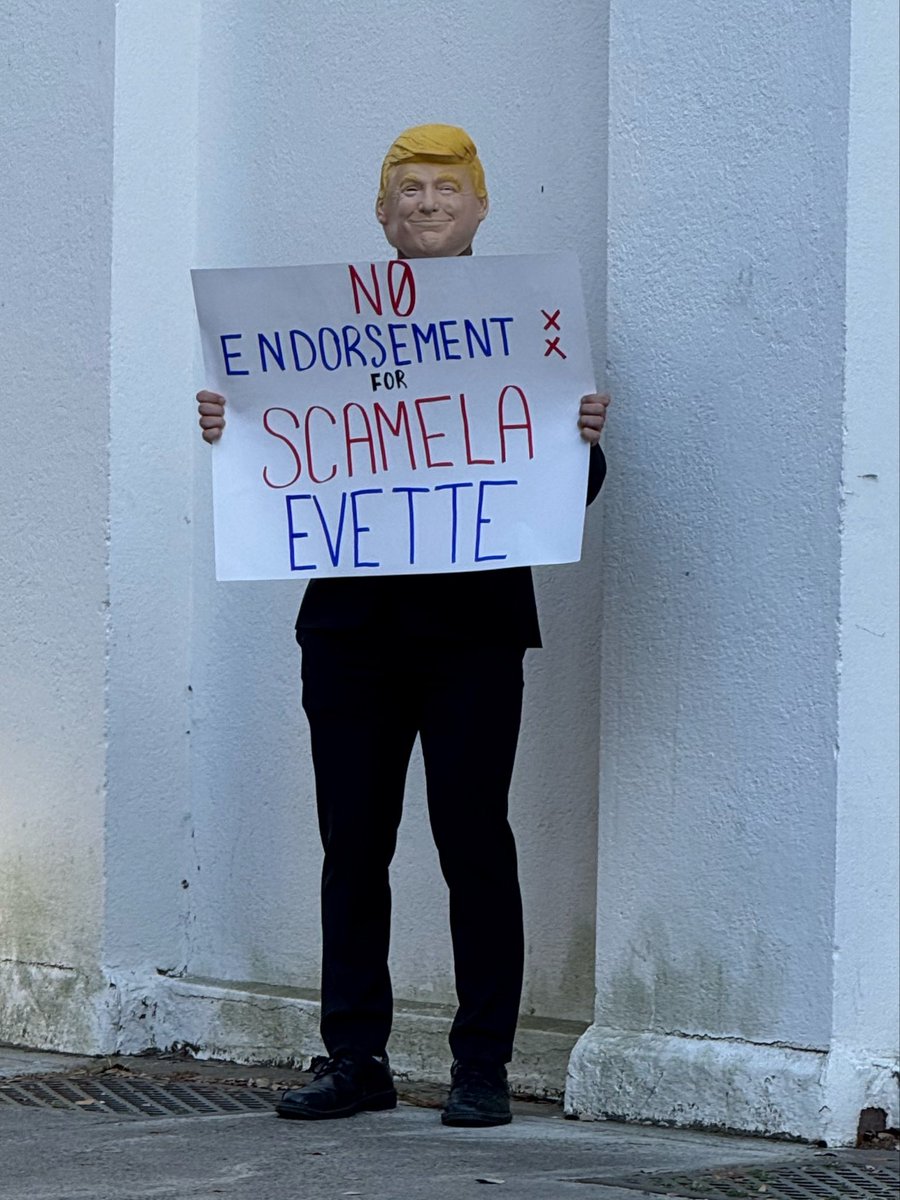 NØ
ENDORSEMENT
FOR
SCAMELA
EVETTE
X
X